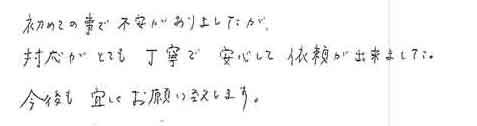 初めての事で不安がありましたが、
対応がとても丁寧で安心して依頼が出来ました。
今後も宜しくお願い致します。